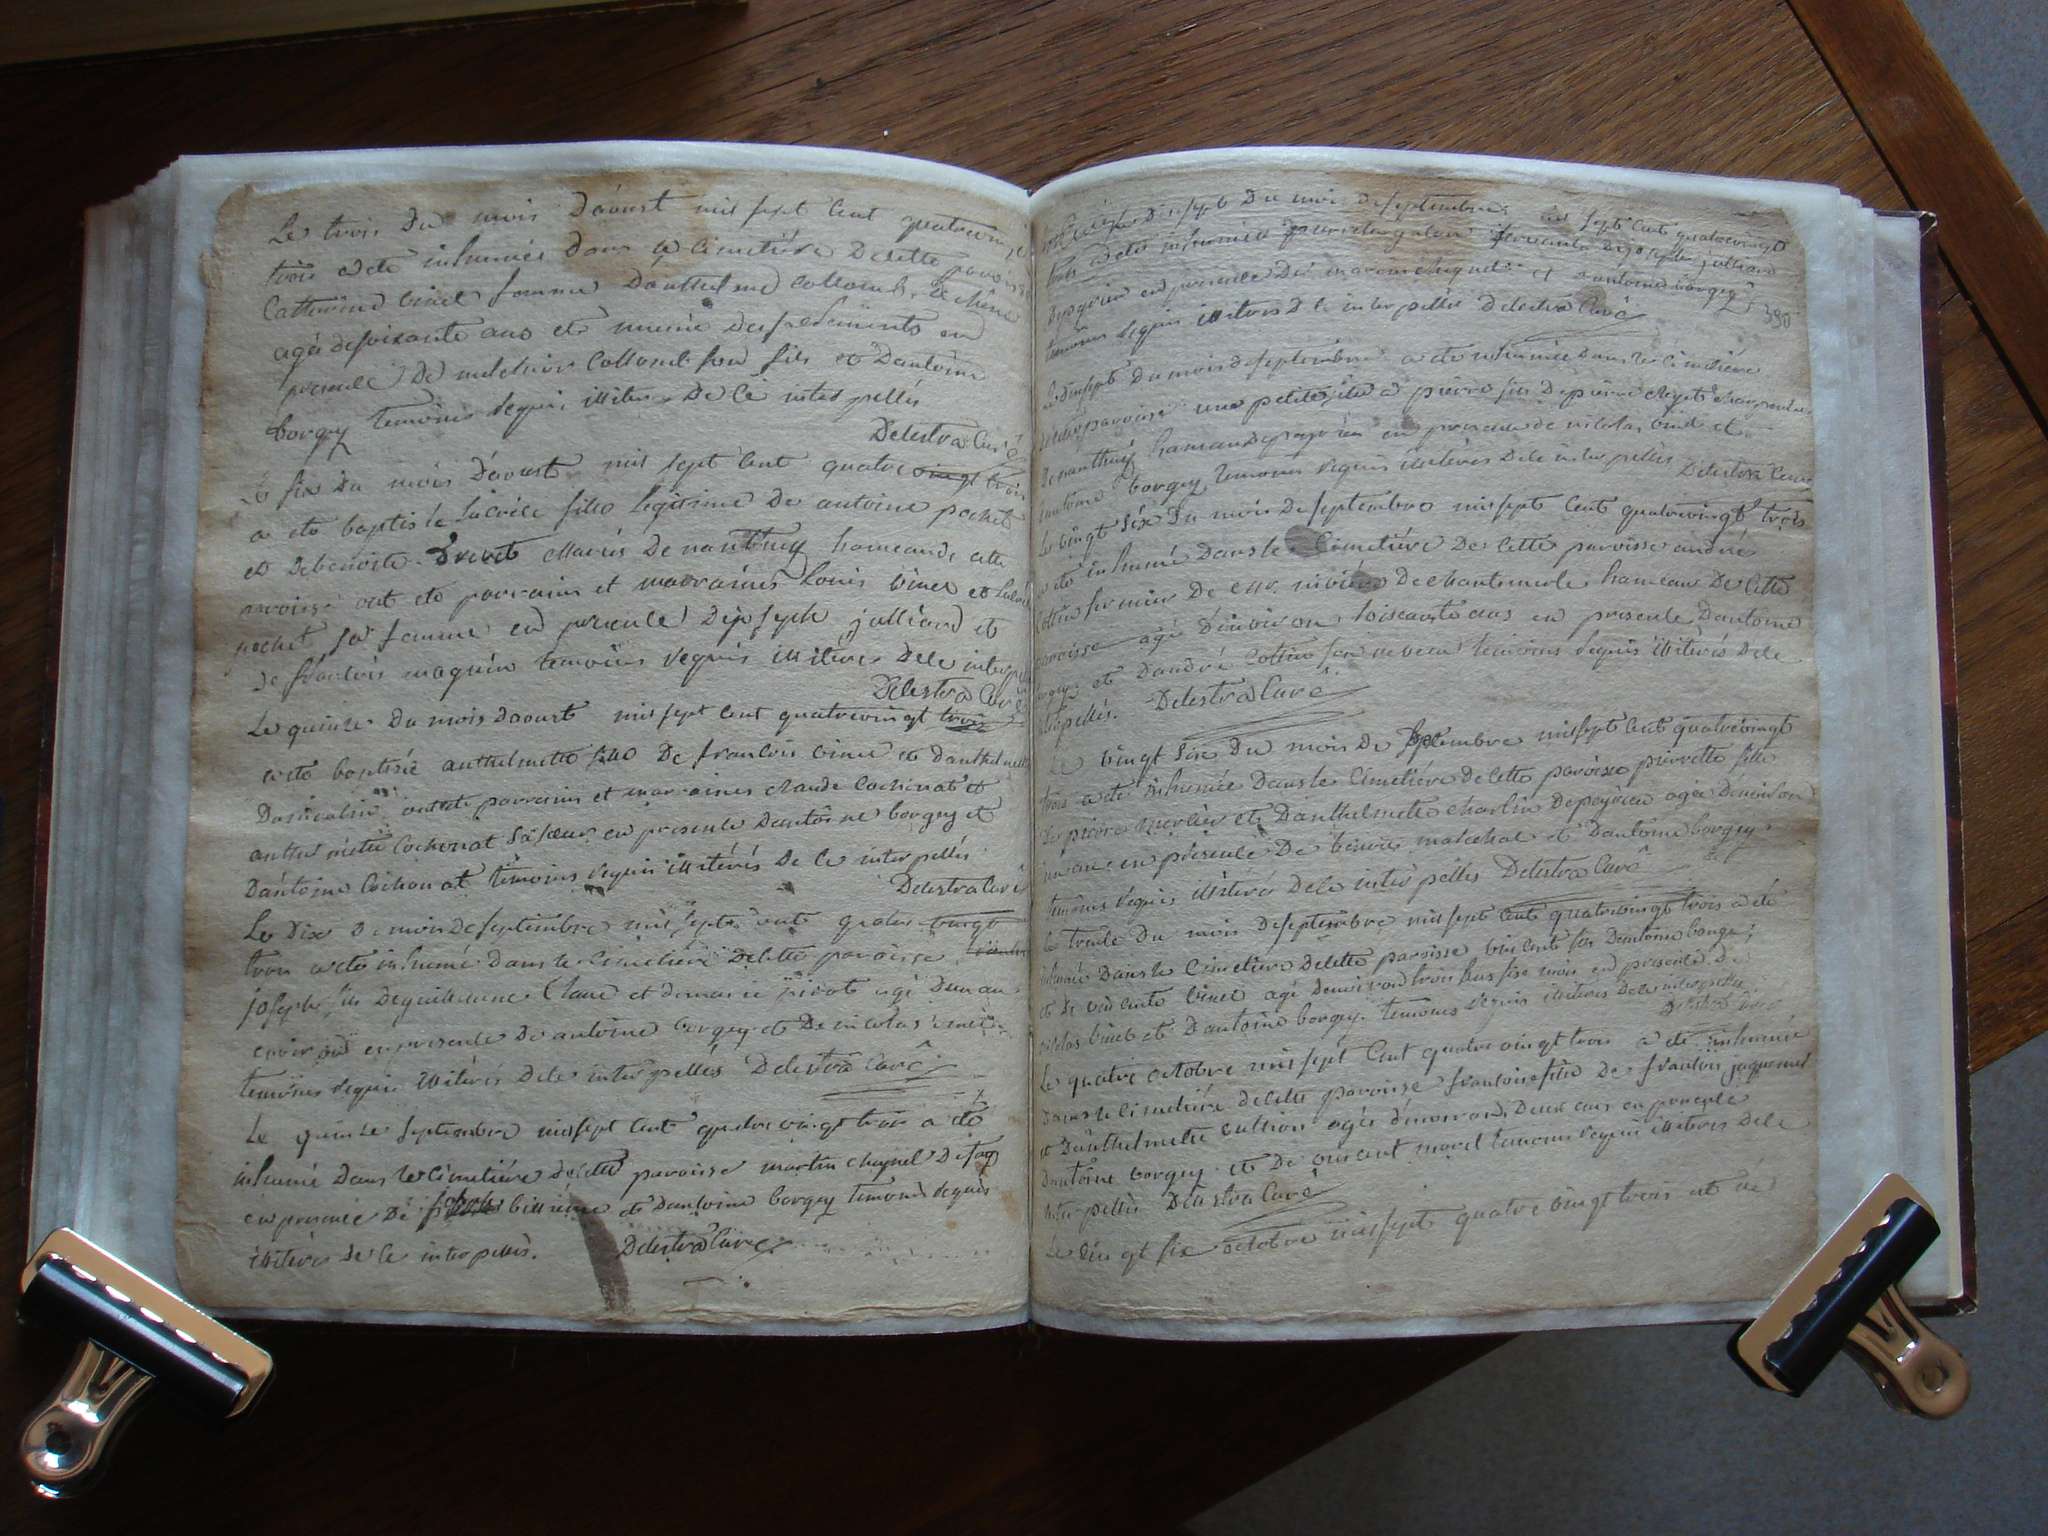 Le trois du mois daoust mil sept cent quatrevingt
trois a ete inhumée dans le cimetiére de cette paroisse
Catherine binet femme d'anthelme collomb
agée de soixante ans et munie des sacrements en
presence de melchior collomb son fils et d'antoine
borgey temoins requis illiteres de ce interpellés
Delestra Curé
Le six du mois daoust mil sept cent quatrevingt trois
a ete baptisée fille legitime de antoine pochet
et de benoite mariés de nanthuy hameau de cette
paroisse ont ete parrains et marraines Louis binet et
pochet sa femme en presence de joseph julliard et
de francois maquin temoins requis illiteres de ce interpellés
Delestra Curé
Le quinze du mois daoust mil sept cent quatrevingt trois
a ete baptisée anthelmette fille de francois binet et d'anthelmette
ont ete parrains et marraines claude cochonat et
anthelmette cochonat sa soeur en presence dantoine borgey et
dantoine cochonat temoins requis illiterés de ce interpellés
Delestra Curé
Le dix du mois de septembre mil sept cent quatre vingt
trois a ete inhumé dans le cimetiére de cette paroisse
joseph fils de guillaume Clane et de marie pivot agé dun an
environ en presence de antoine borgey et de nicolas binet
temoins requis illiterés de ce interpellés Delestra Curé
Le quinze septembre mil sept cent quatre vingt trois a eté
inhumé dans le cimetiére de cette paroisse martin cheynel
en presence de et dantoine borgey temoins requis
illiteres de ce interpellés. Delestra Curé
dix sept du mois de septembre mil sept cent quatrevingt
trois a ete inhumée servante de joseph julliard
de peyrieu en presence de et antoine borgey
temoins requis illiteres de ce interpellés Delestra Curé
390
Le dix sept du mois de septembre a ete inhumée dans le cimetiére
de cette paroisse une petite fille a pierre fils de pierre
de nanthuy hameau de peyrieu en presence de nicolas binet et
antoine borgey temoins requis illiterés de ce interpellés Delestra Curé
Le vingt six du mois de septembre mil sept cent quatrevingt trois
a ete inhumé dans le cimetiére de cette paroisse andré
cottin fermier de de chantemerle hameau de cette
paroisse agé denviron soixante ans en presence dantoine
borgey et dandré cottin son neveu temoins requis illiterés de ce
interpellés. Delestra Curé
Le vingt six du mois de septembre mil sept cent quatrevingt
trois a ete inhumée dans le cimetiére de cette paroisse pierrette fille
de pierre mercier et danthelmette charlin de peyrieu agée denviron
un an en presence de marechal et dantoine borgey
temoins requis illiterés de ce interpellés Delestra Curé
Le trente du mois de septembre mil sept cent quatrevingt trois a ete
inhumé dans le cimetiére de cette paroisse vincent fils dantoine borgey
et de vincente binet agé denviron trois ans six mois en presence de
nicolas binet et dantoine borgey temoins requis illiteres de ce interpellés
Delestra Curé
Le quatre octobre mil sept cent quatre vingt trois a ete inhumée
dans le cimetiére de cette paroisse francoise fille de francois jaquemet
et danthelmette agée denviron deux ans en presence
dantoine borgey et de vincent morel temoins requis illiterés de ce
interpellés Delestra Curé
Le vingt six octobre mil sept quatre vingt trois at eté